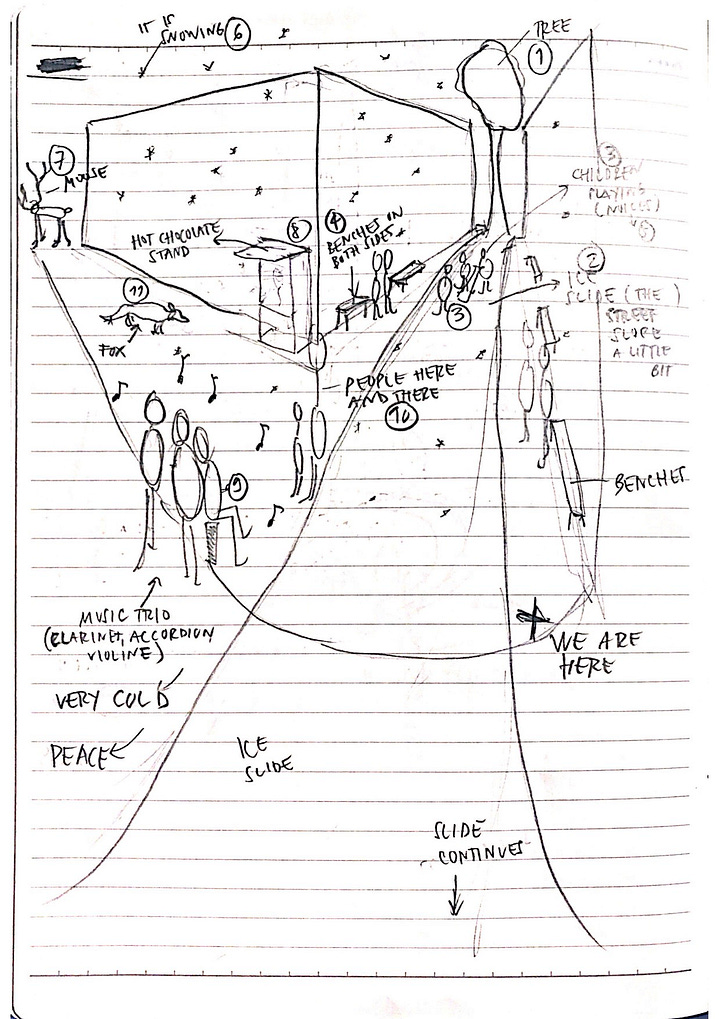 IT IS
SNOWING 6
TREE
1
7
MOOSE
3
CHILDREN
PLAYING
5
HOT CHOCOLATE
STAND
8
4
BENCHES ON
BOTH SIDES
2
ICE
SLIDE (THE)
STREET
SLOPE
A LITTLE
BIT
3
11
FOX
PEOPLE HERE
AND THERE
10
9
BENCHES
MUSIC TRIO
(CLARINET, ACCORDION
VIOLINE)
WE ARE
HERE
VERY COLD
PEACE
ICE
SLIDE
SLIDE
CONTINUES